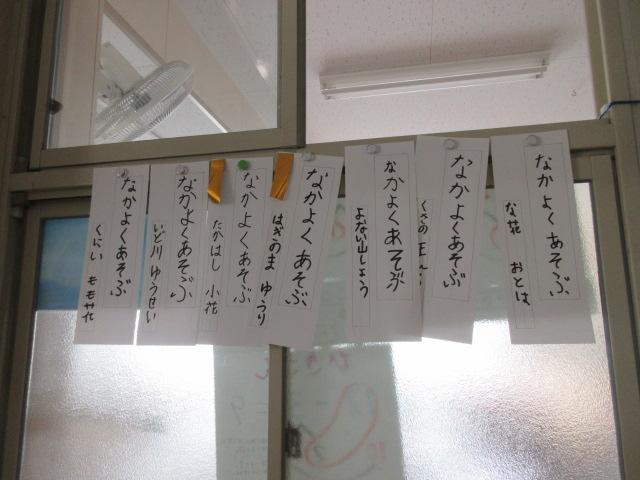 なかよくあそぶ
な花 おとは
なかよくあそぶ
くさの
なかよくあそぶ
よない山しょう
なかよくあそぶ
はぎのま ゆうり
なかよくあそぶ
たかはし 小花
なかよくあそぶ
いど川 ゆうせい
なかよくあそぶ
くにい ももか